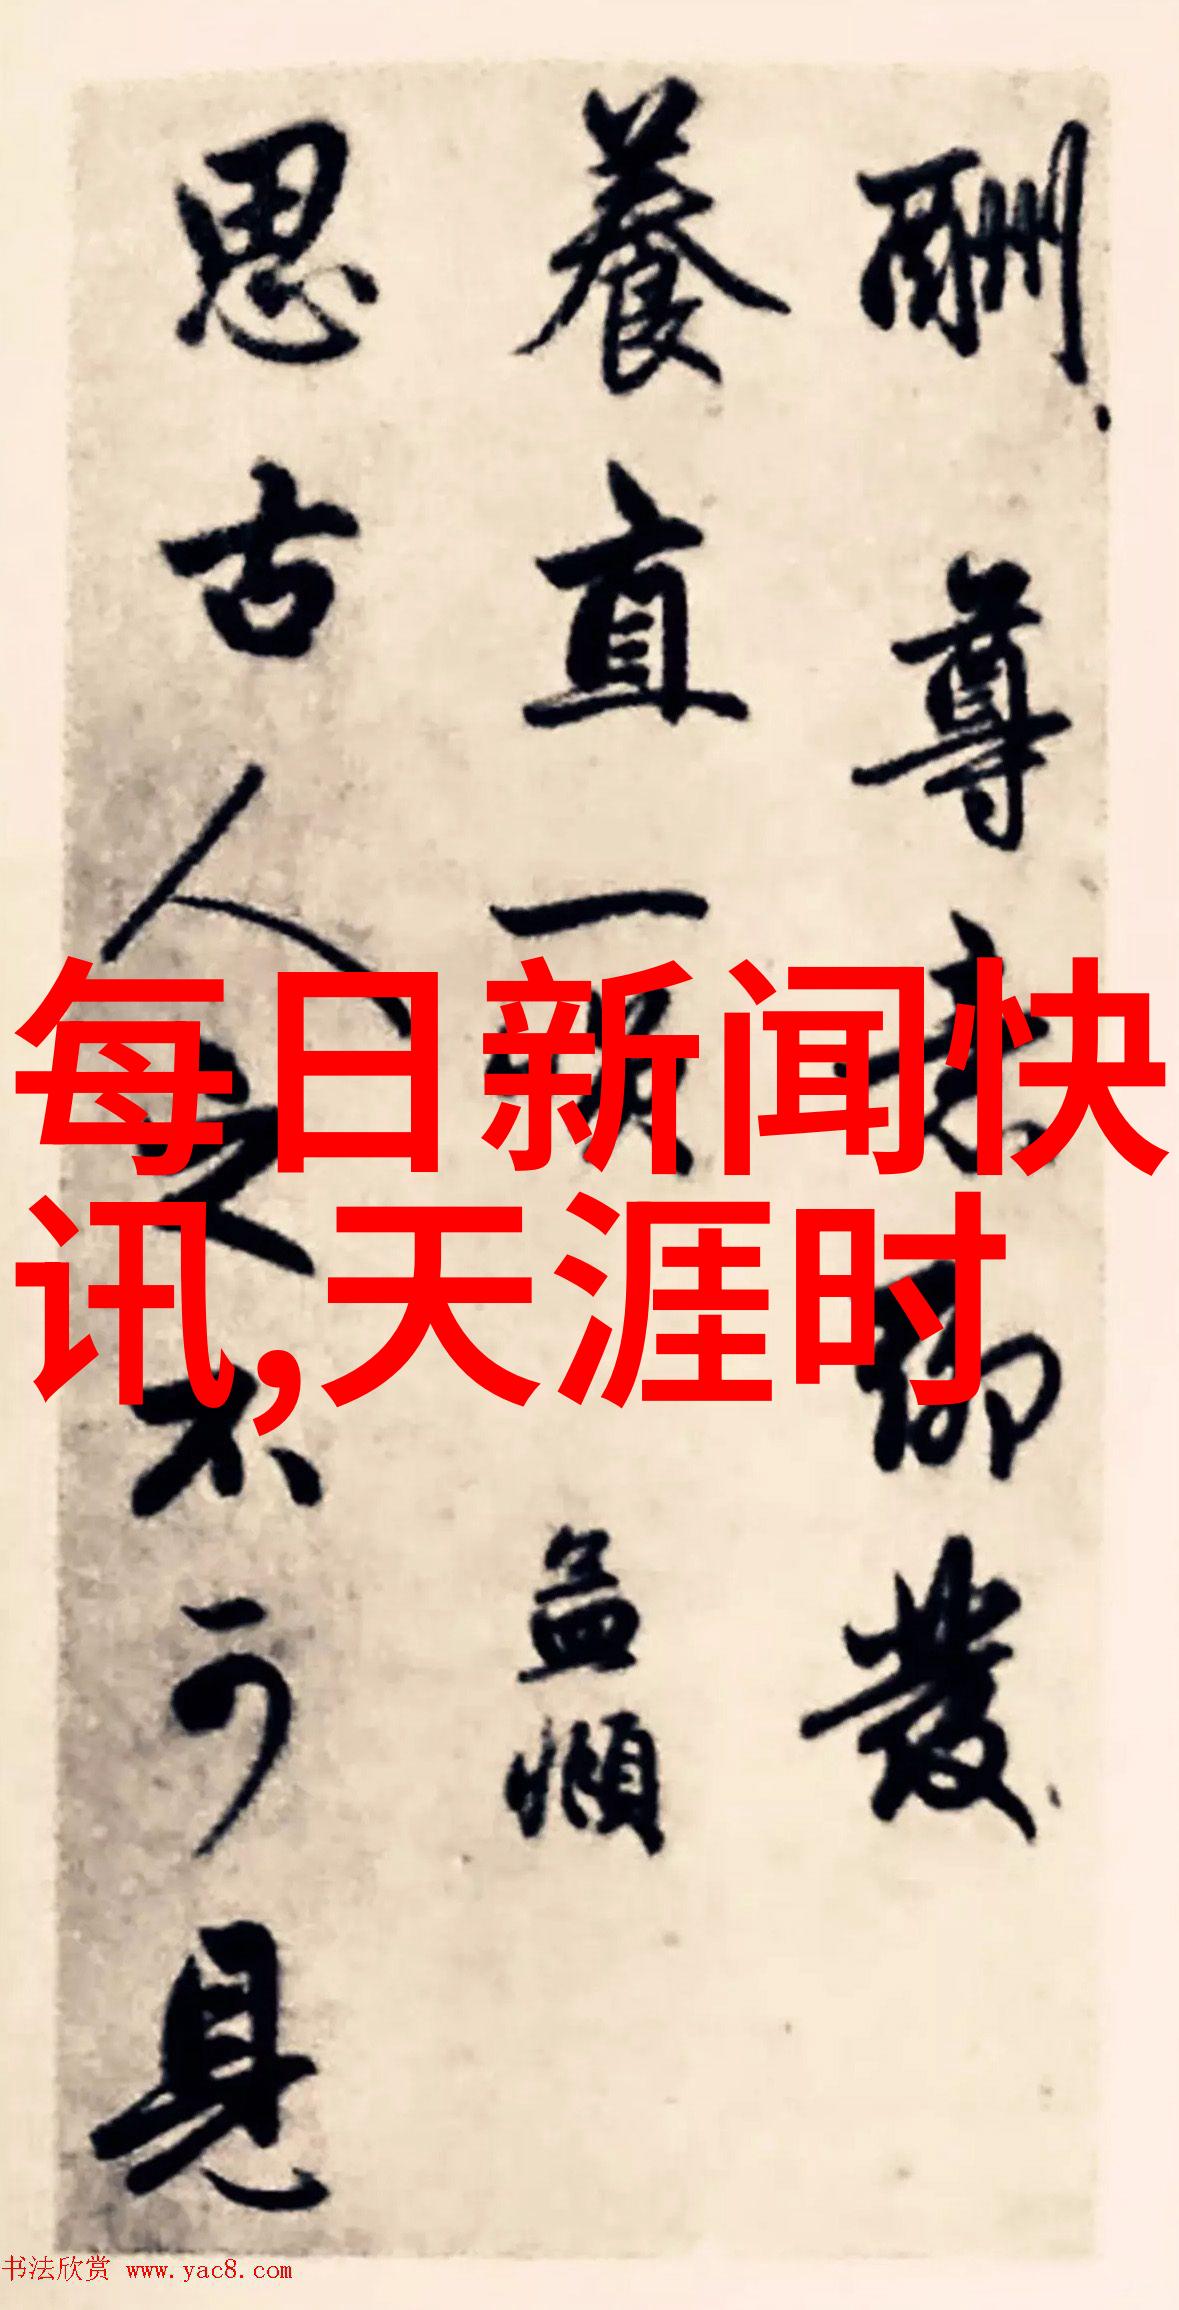 酬尊意聊發
養直一
益煩
思古人之不可見
每日新闻快
讯,天涯时
书法欣赏 www.yac8.com